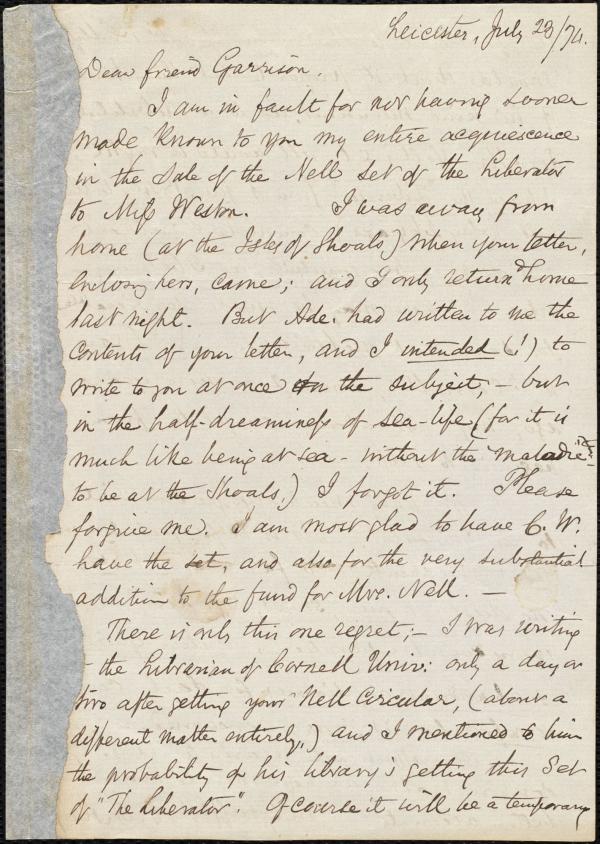 Leicester, July 28/74.
Dear friend Garrison.
I am in fault for not having sooner
made known to you my entire acquiescence
in the sale of the Nell set of the Liberator
to Miss Weston. I was away from
home (at the Isles of Shoals) when your letter,
enclosing hers, came; and I only return'd home
last night. But Ade. had written to me the
contents of your letter, and I intended (!) to
write to you at once on the subject; – but
in the half-dreaminess of sea-life (for it is
much like being at sea – without the "maladie"
to be at the Shoals.) I forgot it. Please
forgive me. I am most glad to have C. W.
have the set, and also for the very substantial
addition to the fund for Mrs. Nell. —
There is only this one regret; – I was writing
– the Librarian of Cornell Univ: only a day or
two after getting your Nell Circular, (about a
different matter entirely,) and I mentioned to him
the probability of his library's getting this set
of "The Liberator". Of course it will be a temporary